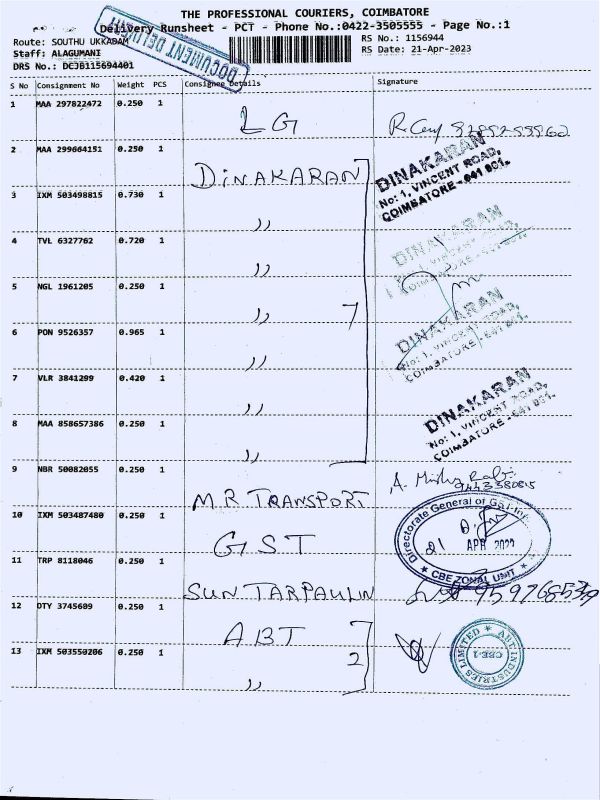 THE PROFESSIONAL COURIERS, COIMBATORE
Delivery Runsheet - PCT - Phone No.:0422-3505555 - Page No.:1
Route: SOUTHU UKKADAM
RS No.: 1156944
Staff: ALAGUMANI
RS Date: 21-Apr-2023
DRS No.: DCJB115694401
DOCUMENT DELIVERY
S No Consignment No Weight PCS Consignee Details Signature
1 MAA 297822472 0.250 1 LG
2 MAA 299664151 0.250 1 DINAKARAN
DINAKARAN
No: 1, VINCENT ROAD,
COIMBATORE-641 001.
3 IXM 503498815 0.730 1 ,,
4 TVL 6327762 0.720 1 ,,
DINAKARAN
No: 1, VINCENT ROAD,
COIMBATORE-641 001.
5 NGL 1961205 0.250 1 ,, 7
6 PON 9526357 0.965 1 ,,
DINAKARAN
No: 1, VINCENT ROAD,
COIMBATORE-641 001.
7 VLR 3841299 0.420 1 ,,
8 MAA 858657386 0.250 1 ,,
DINAKARAN
No: 1, VINCENT ROAD,
COIMBATORE-641 001.
9 NBR 50082055 0.250 1 M.R TRANSPORT
10 IXM 503487480 0.250 1 GST
Directorate General of
21 APR
CBE ZONAL UNIT
11 TRP 8118046 0.250 1 SUN TARPAULIN
12 OTY 3745609 0.250 1 ABT
13 IXM 503550206 0.250 1 ,, 2
ABT INDUSTRIES LIMITED
CBE-1